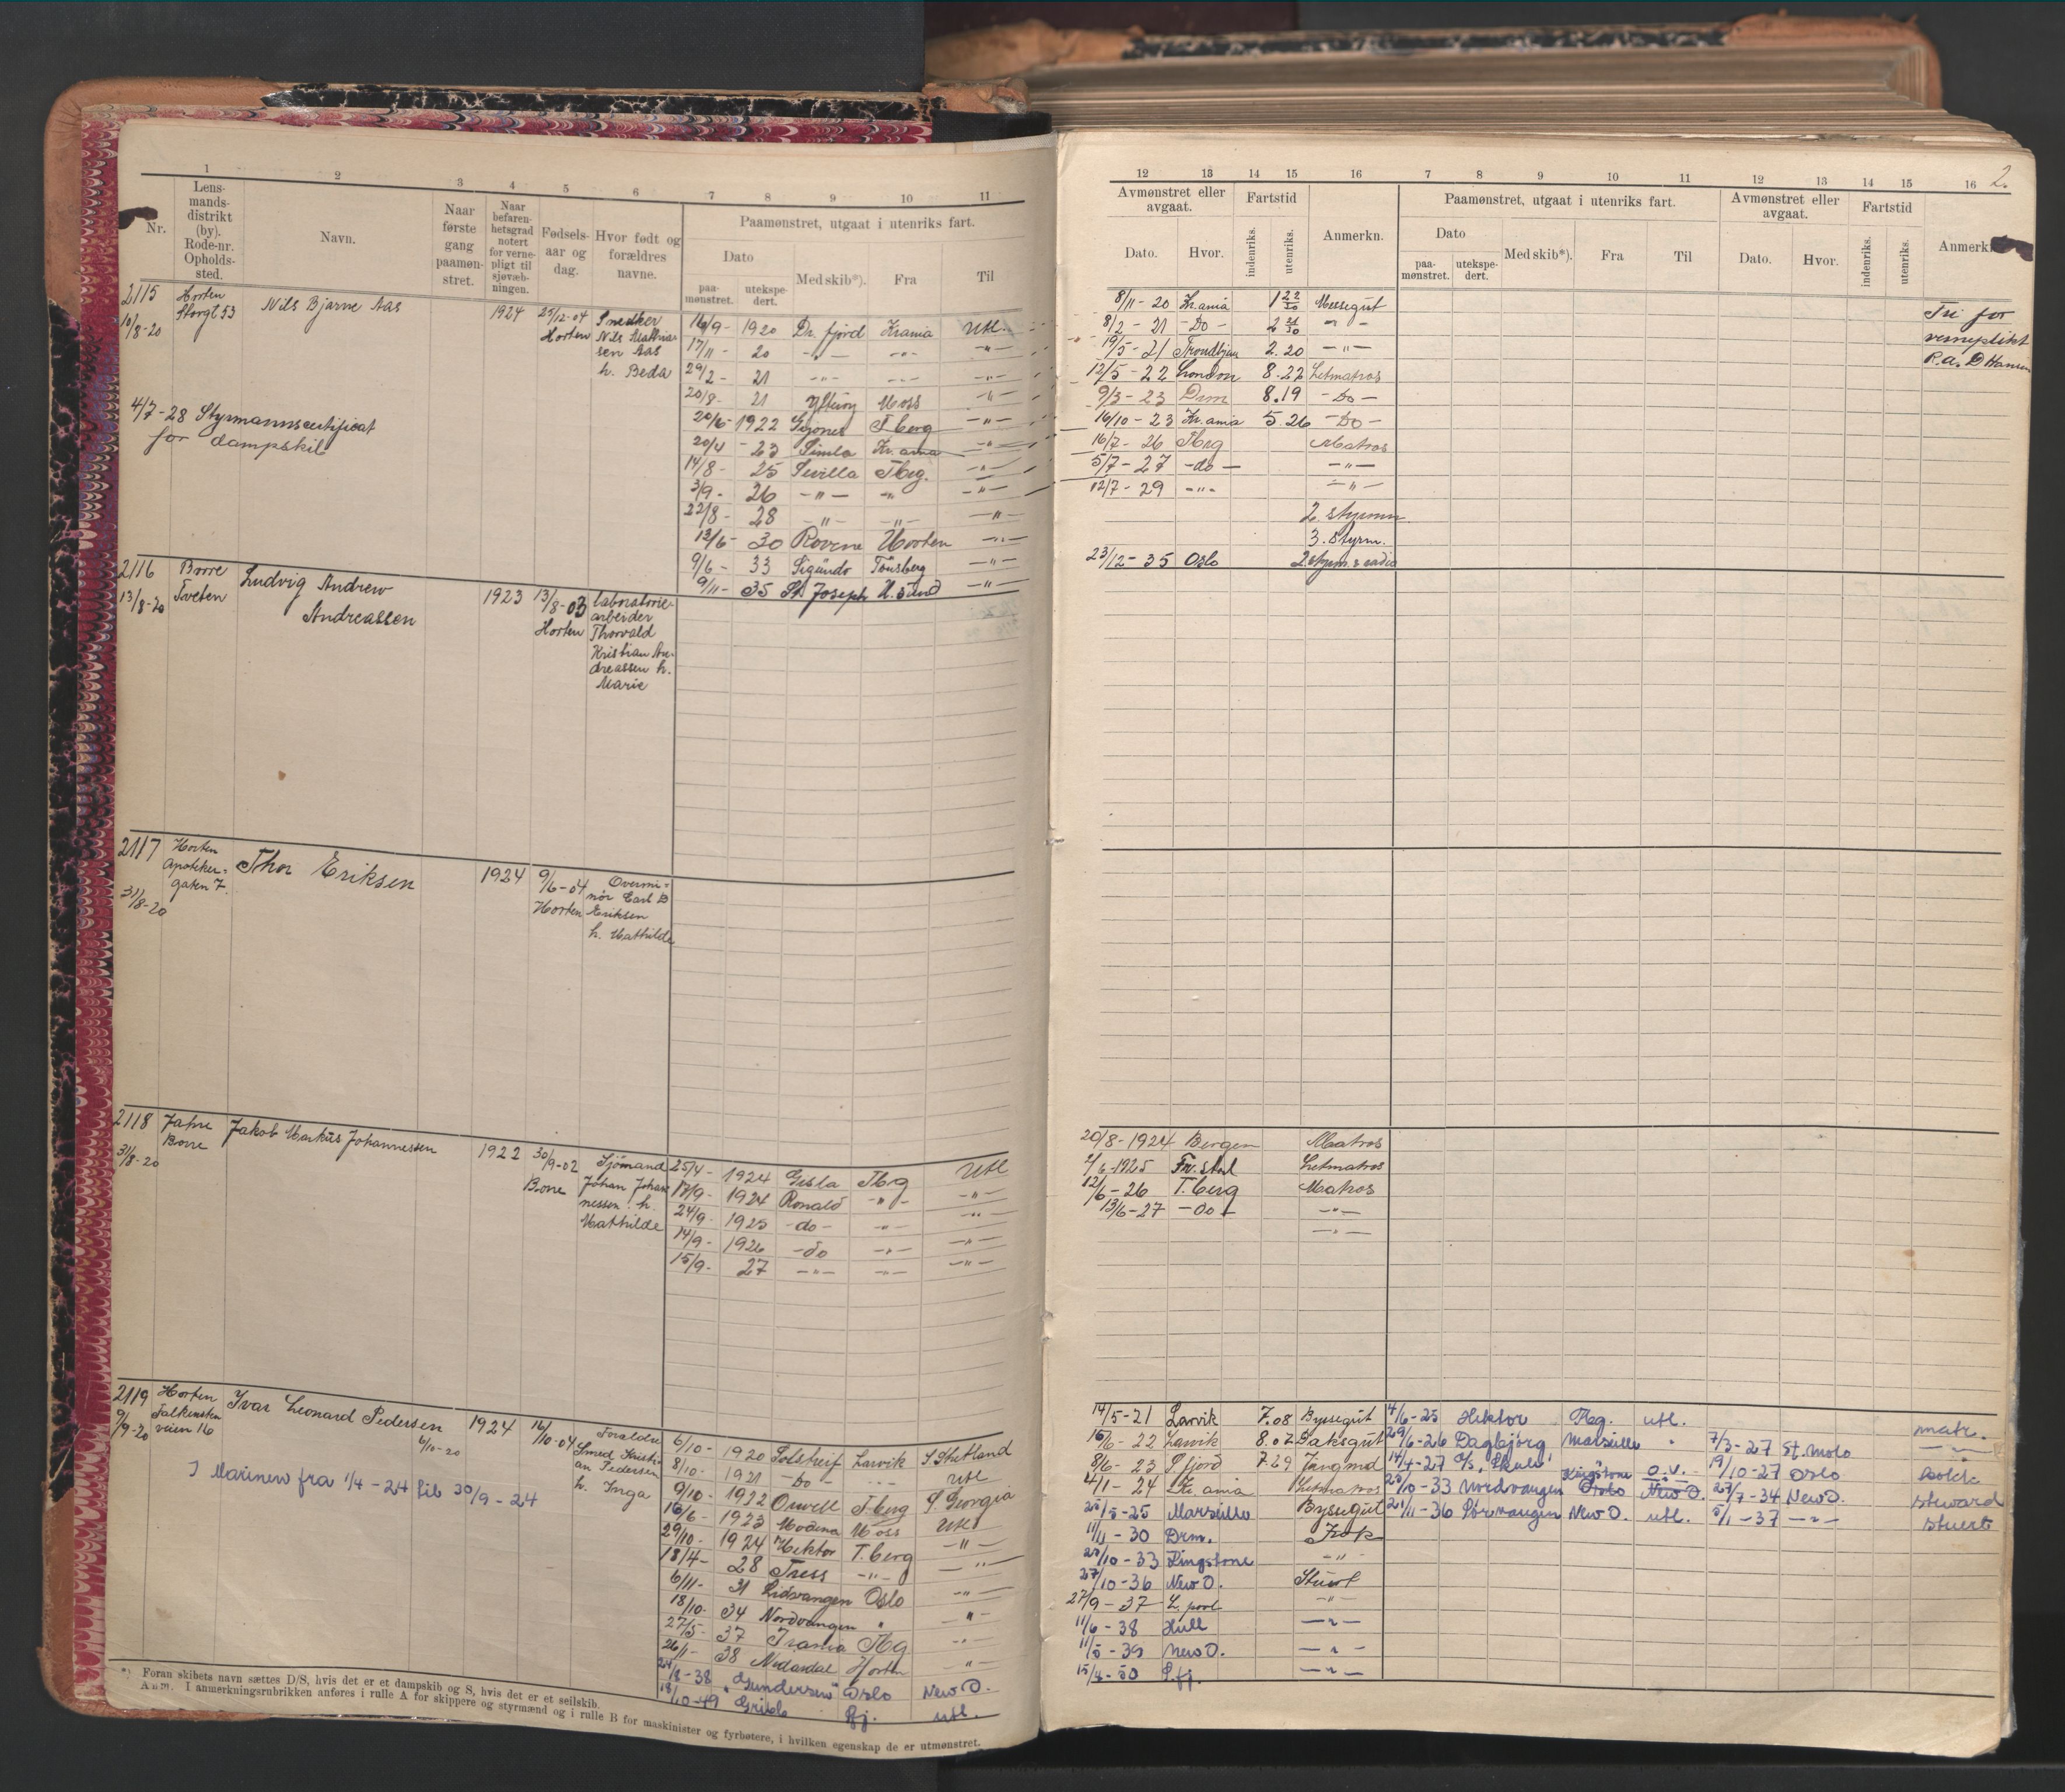 1 2 3 4 5 6 7 8 9 10 11
Nr.
Lens-
mands-
distrikt
(by).
Rode-nr.
Opholds-
sted.
Navn.
Naar
første
gang
paamøn-
stret.
Naar
befaren-
hetsgrad
notert
for verne-
pligt til
sjøvæb-
ningen.
Fødsels-
aar og
dag.
Hvor født og
forældres
navne.
Paamønstret, utgaat i utenriks fart.
Dato
paa-
mønstret.
utekspe-
dert.
Med skib*).
Fra
Til
2115
10/8-20
Horten
Storgt 53
Nils Bjarne Aas
1924
Horten
Snedker
Nils Mathia-
sen Aas
h. Beda
4/7-28 Styrmannscertificat
for dampskib
16/9- 1920 Dr. fjord Krania Utl.
17/11- 20 -"- -"- -"-
29/2- 21 -"- -"- -"-
20/8- 21 Moss -"-
20/6- 1922 T.berg -"-
20/4- 23 Simla Kr.ania -"-
14/8- 25 Sevilla Tbrg. -"-
3/9- 26 -"- -"- -"-
22/8- 28 -"- -"- -"-
13/6- 30 Horten -"-
9/6- 33 Sigurds Tønsberg -"-
9/11- 35 St. Joseph H.sund -"-
2116
13/8-20
Borre
Tveten
Ludvig Andrew
Andreassen
1923
13/8-03
Horten
Laboratorie-
arbeider
Thorvald
Kristian An-
dreassen h.
Marie
2117
31/8-20
Horten
Apoteker-
gaten 7.
Thor Eriksen
1924
9/6-04
Horten
Overmi-
nør Carl
Eriksen
h. Mathilde
2118
31/8-20
Jahre
Borre
Jakob Markus Johannessen
1922
30/9-02
Borre
Sjømand
Johan Johan
nessen h.
Mathilde
25/4- 1924 Gisla Tbg Utl
17/9- 1924 Ronald -"- -"-
24/9- 1925 -do- -"- -"-
14/9- 1926 -do -"- -"-
15/9- 27 -"- -"- -"-
2119
9/9-20
Horten
Falkensten
veien 16
Ivar Leonard Pedersen
6/10-20
1924
16/10-04
Foraldre
Smed Kristi-
an Pedersen
h. Inga
I Marinen fra 1/4-24 til 30/9-24
6/10- 1920 Solstreif Larvik S. Shetland
8/10- 1921 -Do- -"- Utl
9/10- 1922 Orwell T.berg S. Georgia
16/6- 1923 Modena Moss Utl
29/10- 1924 Hektor T.berg -"-
18/4- 28 Tress -"- -"-
6/11- 31 Lidvangen Oslo -"-
18/10- 34 Nordvangen " -"-
27/5- 37 Irania Tbg -"-
26/1- 38 Nidardal Horten -"-
24/8-38 "Gundersen" Oslo New O.
18/10-49 utl.
*) Foran skibets navn sættes D/S, hvis det er et dampskib og S, hvis det er et seilskib.
Anm. I anmerkningsrubrikken anføres i rulle A for skippere og styrmænd og i rulle B for maskinister og fyrbøtere, i hvilken egenskap de er utmønstret.
12 13 14 15 16 7 8 9 10 11 12 13 14 15 16
2.
Avmønstret eller
avgaat.
Dato.
Hvor.
Fartstid
indenriks.
utenriks.
Anmerkn.
Paamønstret, utgaat i utenriks fart.
Dato
paa-
mønstret.
utekspe-
dert.
Med skib*).
Fra
Til
Avmønstret eller
avgaat.
Dato.
Hvor.
Fartstid
indenriks.
utenriks.
Anmerkn
8/11-20 Kr.ania 1 22/30 Messegut
8/2-21 -Do- -"-
19/5-21 Trondhjem 2.20 -"-
12/5-22 London 8.22 Letmatros
9/3-23 Drm 8.19 -Do-
16/10-23 Kr.ania 5.26 -Do-
16/7-26 Tbrg Matros
5/7-27 -do- -"-
12/7-29 -"- -"-
2. styrmn.
3. Styrm.
23/12-35 Oslo
Fri for
verneplikt
20/8-1924 Bergen Matros
2/6-1925 Fr.stad Letmatros
12/6-26 T.berg Matros
13/6-27 -Do- -"-
-"-
14/5-21 Larvik 7.08 Byssegut 4/6-25 Hektor Tbg. utl. matr.
16/6-22 Larvik 8.02 Daksgut 29/6-26 Dagbjørg Marseille " 7/3-27 St. Malo -"-
8/6-23 S.fjord 7.29 Jungmd 14/4-27 19/10-27 Oslo kokk
4/11-24 Kr.ania Letmatros 20/10-33 Nordvangen Kingstone Oslo O.V. New O. 27/7-34 New O. steward
25/5-25 Marseille Byssegut 21/11-36 Sørvangen New O. utl. 5/1-37 -"- stuert
11/11-30 Drm. Kok
20/10-33 Kingstone -"-
27/10-36 New O. Stuert
27/9-37 L.pool -"-
11/6-38 Hull -"-
11/5-39 New O. -"-
15/4-50 S.fj. -"-